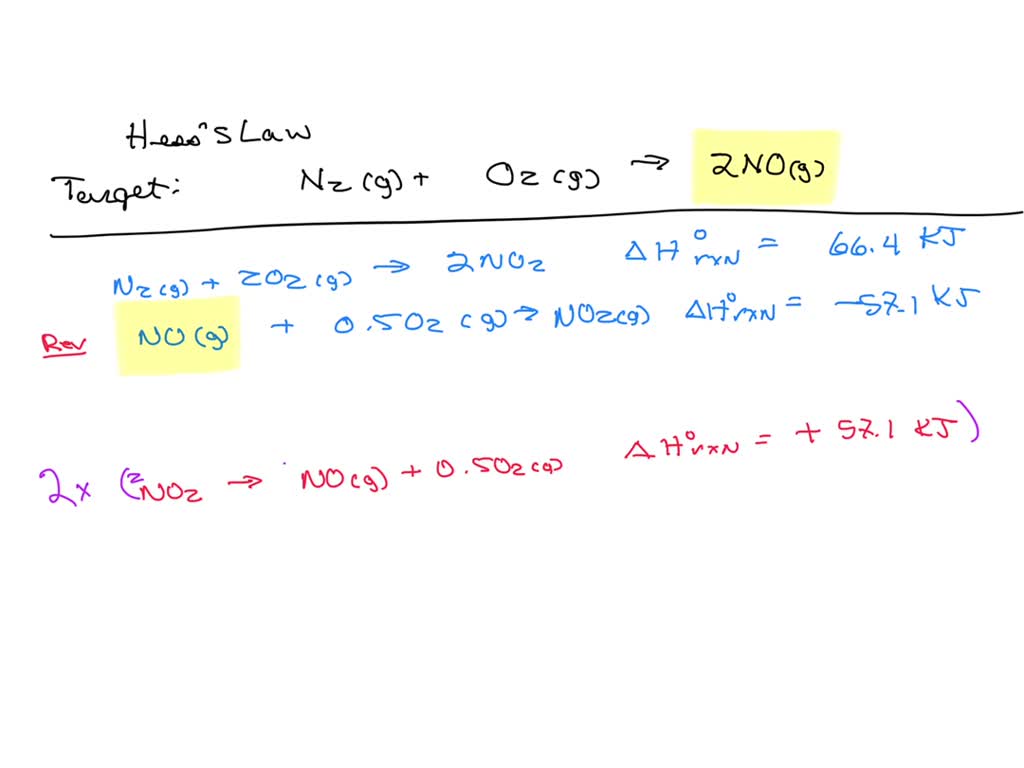 Hess's Law
Target: N2 (g) + O2 (g) → 2NO(g)
N2(g) + 2O2 (g) → 2NO2 ΔH°rxN = 66.4 KJ
Rev NO(g) + 0.5O2 (g) → NO2(g) ΔH°rxN = -57.1 KJ
2x (2NO2 → NO(g) + 0.5O2(g) ΔH°rxN = + 57.1 KJ)